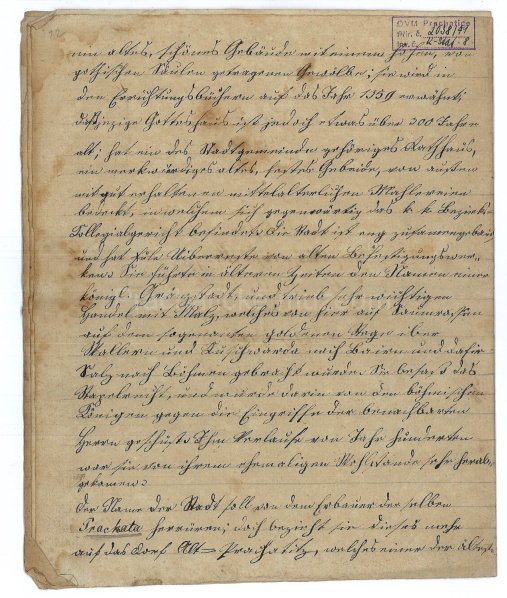 72
OVM Prachatice
Př. č. 2038/91
ein altes, schönes Gebäude mit einem hohen, von
gothischen Säulen getragenen Gewölbe, sie wird in
den Errichtungsbüchern auf das Jahr 1359 erwähnt;
das jezige Gotteshaus ist jedoch etwas über 200 Jahre
alt; hat ein der Stadtgemeinde gehöriges Rathhaus,
ein merkwürdiges altes, festes Gebeide, von aussen
mit gut erhaltenen mittelalterlichen Mahlereien
bedekt, in welchem sich gegenwärtig das k. k. Bezirks-
Kollegialgericht befindet. Die Stadt ist eng zusamengebaut
und hat viele Ueberreste von alten Befestigungswer-
ken. Sie führte in älteren Zeiten den Namen einer
königl. Gränzstadt, und trieb sehr wichtigen
Handel mit Malz, welches von hier auf Saumrossen
auf dem sogenanten goldenen Wege über
Wallern und Kuschwarda nach Baiern und dafür
Salz nach Böhmen gebracht wurde. Sie besaß das
Stapelrecht, und wurde darin von den böhmischen
Königen gegen die Eingriffe der benachbarten
Herrn geschüzt. Im Verlaufe von Jahrhunderten
war sie von ihrem ehemaligen Wohlstande sehr herab-
gekomen.
Der Name der Stadt soll von dem Erbauer derselben
Prachata herrüren; doch bezieht sie dieses mehr
auf das Dorf Alt=Prachatitz, welches einer der älteste